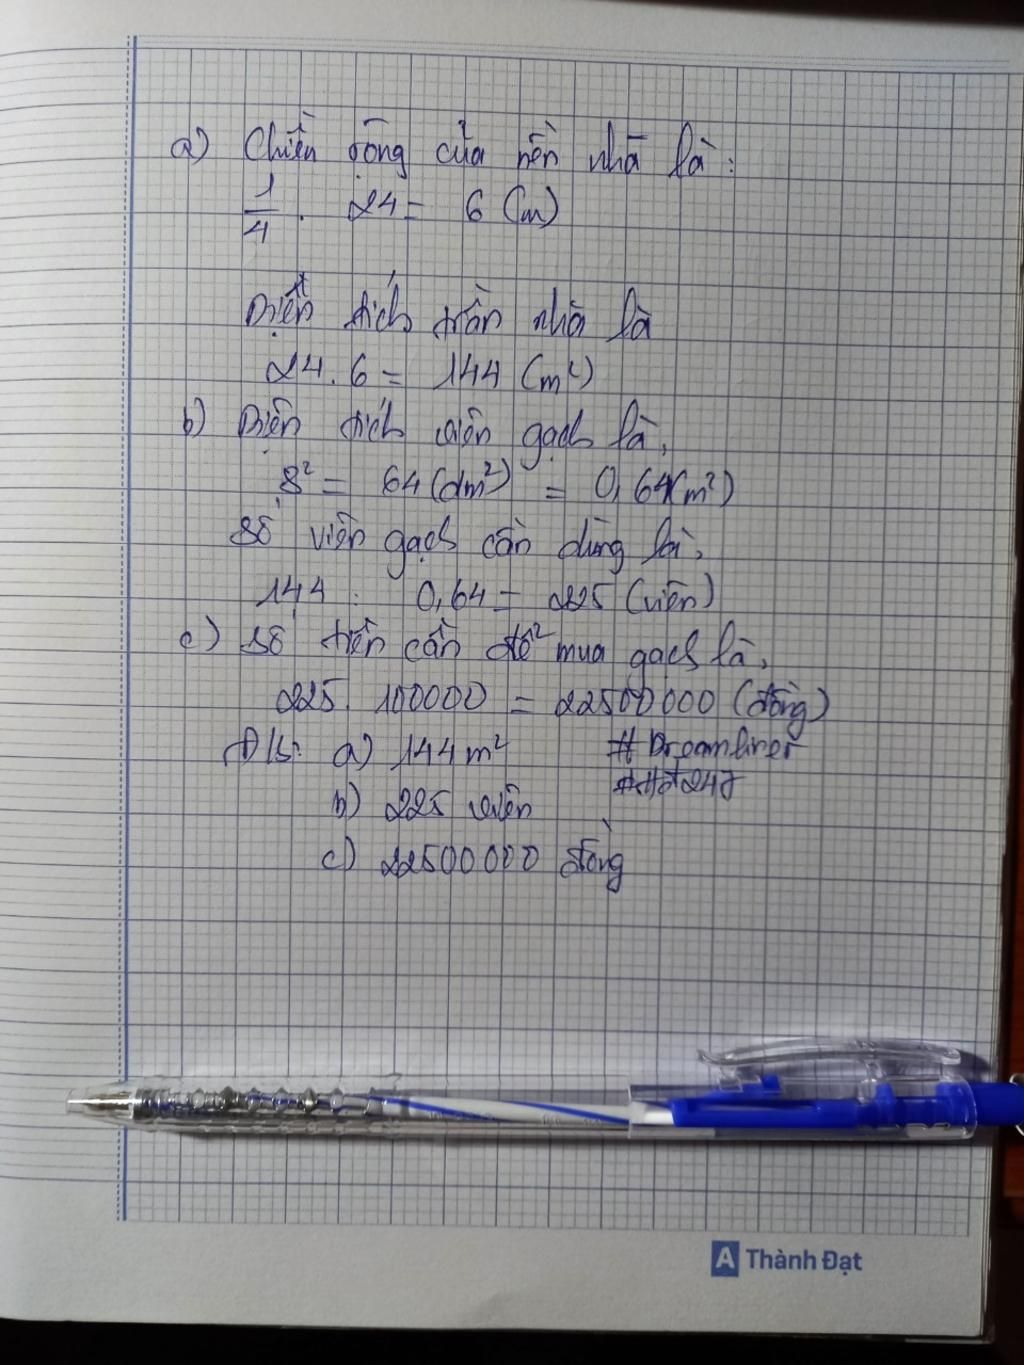 a) Chiều rộng của nền nhà là:
1/4 . 24 = 6 (m)
Diện tích trần nhà là
24.6 = 144 (m²)
b) Diện tích viên gạch là,
8² = 64 (dm²) = 0,64 (m²)
Số viên gạch cần dùng là,
144 : 0,64 = 225 (viên)
c) Số tiền cần để mua gạch là,
225. 100000 = 22500000 (đồng)
Đ/s: a) 144 m² # Dreamliner
b) 225 viên
c) 22500000 đồng
A Thành Đạt